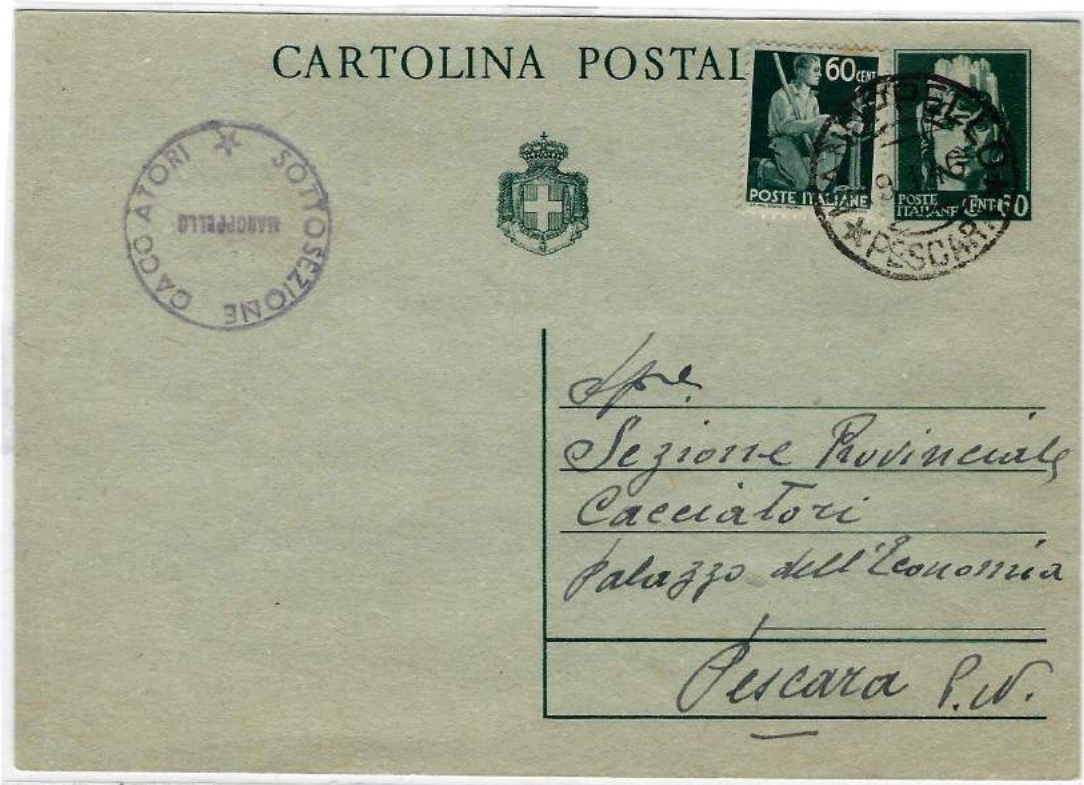 CARTOLINA POSTAL
60 CENT
POSTE ITALIANE
POSTE
ITALIANE CENT. 60
PESCARA
SOTTOSEZIONE CACCIATORI
MANOPPELLO
Spe.
Sezione Provinciale
Cacciatori
Palazzo dell'Economia
Pescara P.N.